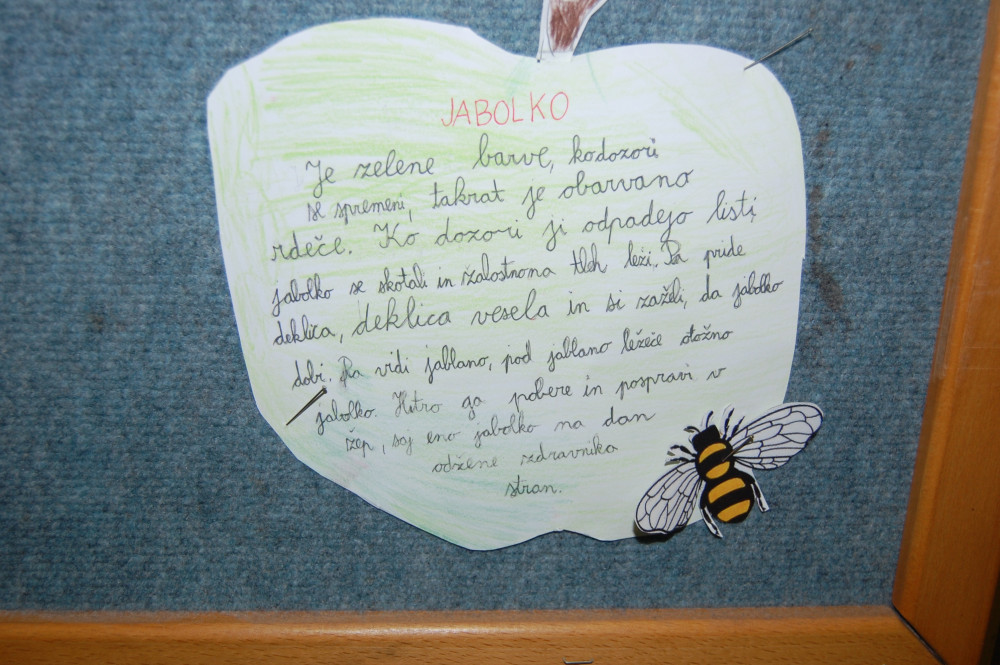 JABOLKO
Je zelene barve, kodozori
se spremeni, takrat je obarvano
rdeče. Ko dozori ji odpadejo listi
jabolko se skotali in žalostnona tleh leži. Pa pride
deklica, deklica vesela in si zaželi, da jabolko
dobi. Pa vidi jablano, pod jablano ležeče otožno
jabolko. Hitro ga pobere in pospravi v
žep, saj eno jabolko na dan
odžene zdravnika
stran.